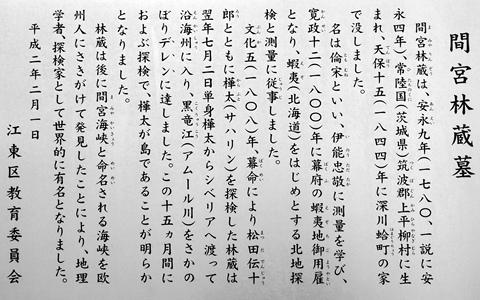 間宮林蔵墓
間宮林蔵は、安永九年(一七八〇、一説に安
永四年)常陸国(茨城県)筑波郡上平柳村に生
まれ、天保十五(一八四四)年に深川蛤町の家
で没しました。
名は倫宗といい、伊能忠敬に測量を学び、
寛政十二(一八〇〇)年に幕府の蝦夷地御用雇
となり、蝦夷(北海道)をはじめとする北地探
検と測量に従事しました。
文化五(一八〇八)年、幕命により松田伝十
郎とともに樺太(サハリン)を探検した林蔵は
翌年七月二日単身樺太からシベリアへ渡って
沿海州に入り、黒竜江(アムール川)をさかの
ぼりデレンに達しました。この十五ヵ月間に
およぶ探検で、樺太が島であることが明らか
となりました。
林蔵は後に間宮海峡と命名される海峡を欧
州人にさきがけて発見したことにより、地理
学者、探検家として世界的に有名となりました。
平成二年二月一日
江東区教育委員会